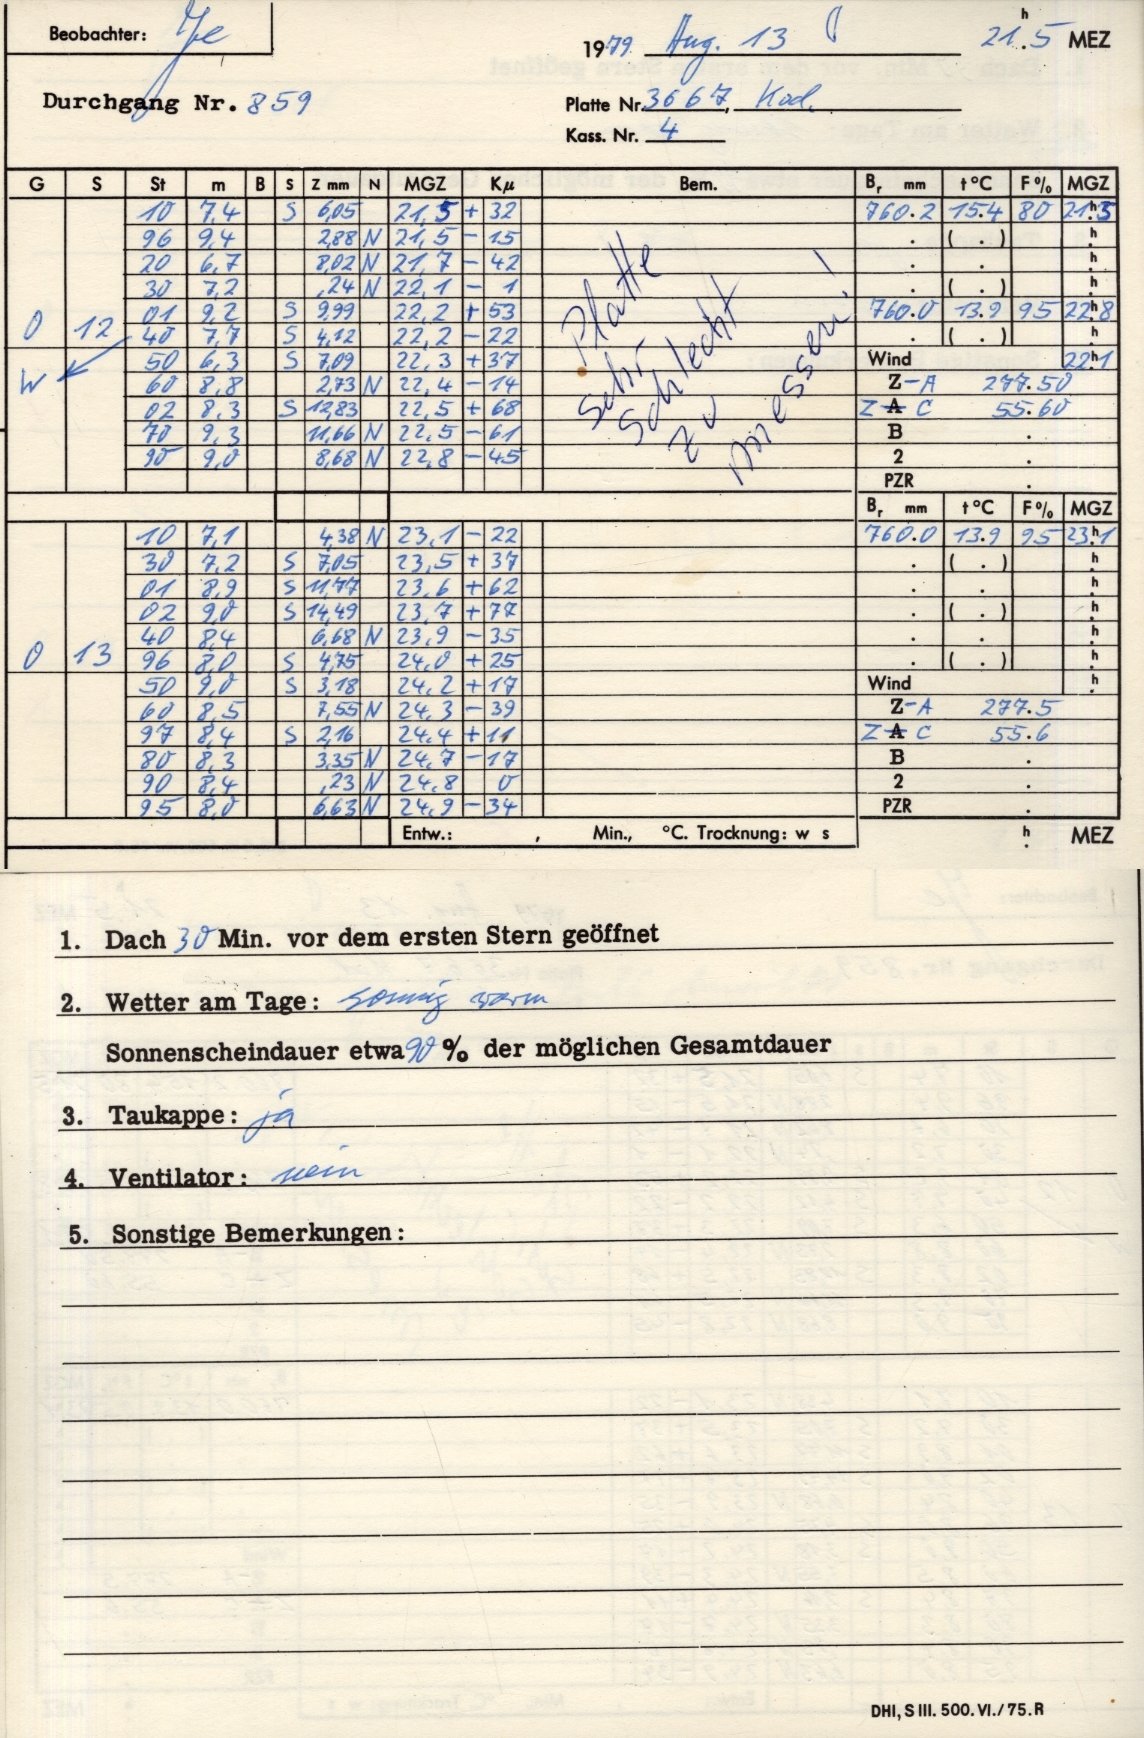 Beobachter: Je
1979 Aug. 13 21.ʰ5 MEZ
Durchgang Nr. 859
Platte Nr. 3667, Kod.
Kass. Nr. 4
G S St m B S Z mm N MGZ Kμ Bem. Bᵣ mm t°C F% MGZ
10 7,4 S 6,05 21,5 + 32 760.2 15.4 80 21ʰ.5
96 9,4 2,88 N 21,5 - 15 . ( . ) ʰ.
20 6,7 8,02 N 21,7 - 42 . . ʰ.
30 7,2 ,24 N 22,1 - 1 . ( . ) ʰ.
01 9,2 S 9,99 22,2 + 53 760.0 13.9 95 22ʰ.8
0 12 40 7,7 S 4,12 22,2 - 22 . ( . ) ʰ.
W 50 6,3 S 7,09 22,3 + 37 Wind 22ʰ.1
60 8,8 2,73 N 22,4 - 14 Z-A 277.50
02 8,3 S 12,83 22,5 + 68 Z A C 55.60
70 9,3 11,66 N 22,5 - 61 B .
90 9,0 8,68 N 22,8 - 45 2 .
PZR .
Platte
sehr
schlecht
zu
messen!
Bᵣ mm t°C F% MGZ
10 7,1 4,38 N 23,1 - 22 760.0 13.9 95 23ʰ.1
30 7,2 S 7,05 23,5 + 37 . ( . ) ʰ.
01 8,9 S 11,77 23,6 + 62 . . ʰ.
02 9,0 S 14,49 23,7 + 77 . ( . ) ʰ.
40 8,4 6,68 N 23,9 - 35 . . ʰ.
0 13 96 8,0 S 4,75 24,0 + 25 . ( . ) ʰ.
50 9,0 S 3,18 24,2 + 17 Wind ʰ.
60 8,5 7,55 N 24,3 - 39 Z-A 277.5
97 8,4 S 2,16 24,4 + 11 Z A C 55.6
80 8,3 3,35 N 24,7 - 17 B .
90 8,4 ,23 N 24,8 0 2 .
95 8,0 6,63 N 24,9 - 34 PZR .
Entw.: , Min., °C. Trocknung: w s ʰ. MEZ
1. Dach 30 Min. vor dem ersten Stern geöffnet
2. Wetter am Tage: sonnig warm
Sonnenscheindauer etwa 90 % der möglichen Gesamtdauer
3. Taukappe: ja
4. Ventilator: nein
5. Sonstige Bemerkungen:
DHI, S III. 500. VI./75. R